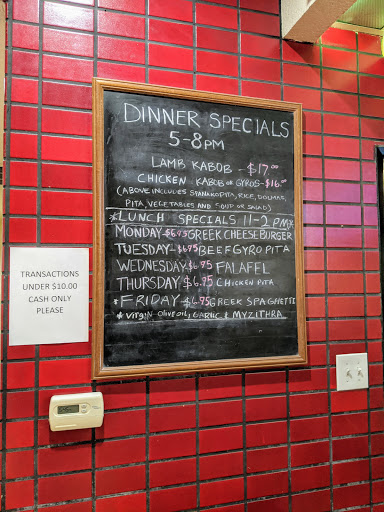 DINNER SPECIALS
5-8PM
LAMB KABOB - $17.00
CHICKEN KABOB OR GYROS - $16.00
(ABOVE INCLUDES SPANAKOPITA, RICE, DOLMAS,
PITA, VEGETABLES AND SOUP OR SALAD)
*LUNCH SPECIALS 11-2 PM*
MONDAY-$6.95 GREEK CHEESE BURGER
TUESDAY-$6.95 BEEF GYRO PITA
WEDNESDAY $6.95 FALAFEL
THURSDAY $6.95 CHICKEN PITA
*FRIDAY-$6.95 GREEK SPAGHETTI
* VIRGIN-OLIVE OIL, GARLIC & MYZITHRA
TRANSACTIONS
UNDER $10.00
CASH ONLY
PLEASE